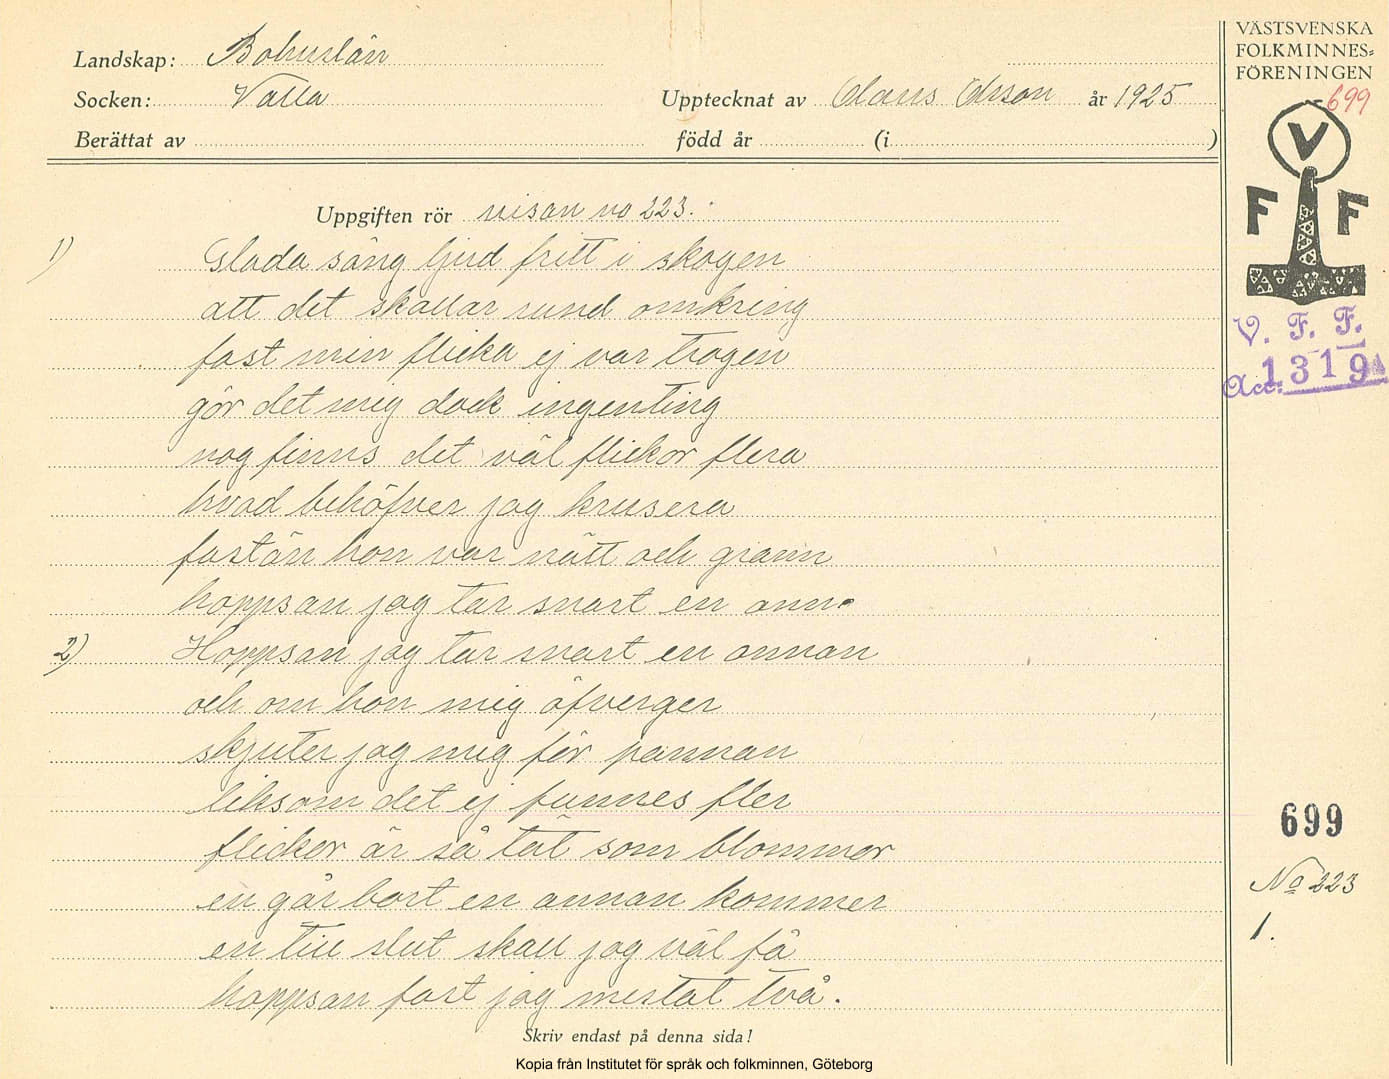 Landskap: Bohuslän
Socken: Valla
Upptecknat av Claus Olsson år 1925
Berättat av född år (i )
VÄSTSVENSKA
FOLKMINNES=
FÖRENINGEN
699
V
F F
V. F. F.
Acc. 1319
Uppgiften rör visan no 223.
1) Glada sång ljud fritt i skogen
att det skallar rund omkring
fast min flicka ej var trogen
gör det mig dock ingenting
nog finns det väl flickor flera
hvad behöfver jag krusera
fastän hon var nätt och grann
hoppsan jag tar snart en ann.
2) Hoppsan jag tar snart en annan
och om hon mig öfverger
skjuter jag mig för pannan
liksom det ej funnes fler
flickor är så tät som blommor
en går bort en annan kommer
en till slut skall jag väl få
hoppsan fast jag mistat två.
699
No 223
1.
Skriv endast på denna sida!
Kopia från Institutet för språk och folkminnen, Göteborg